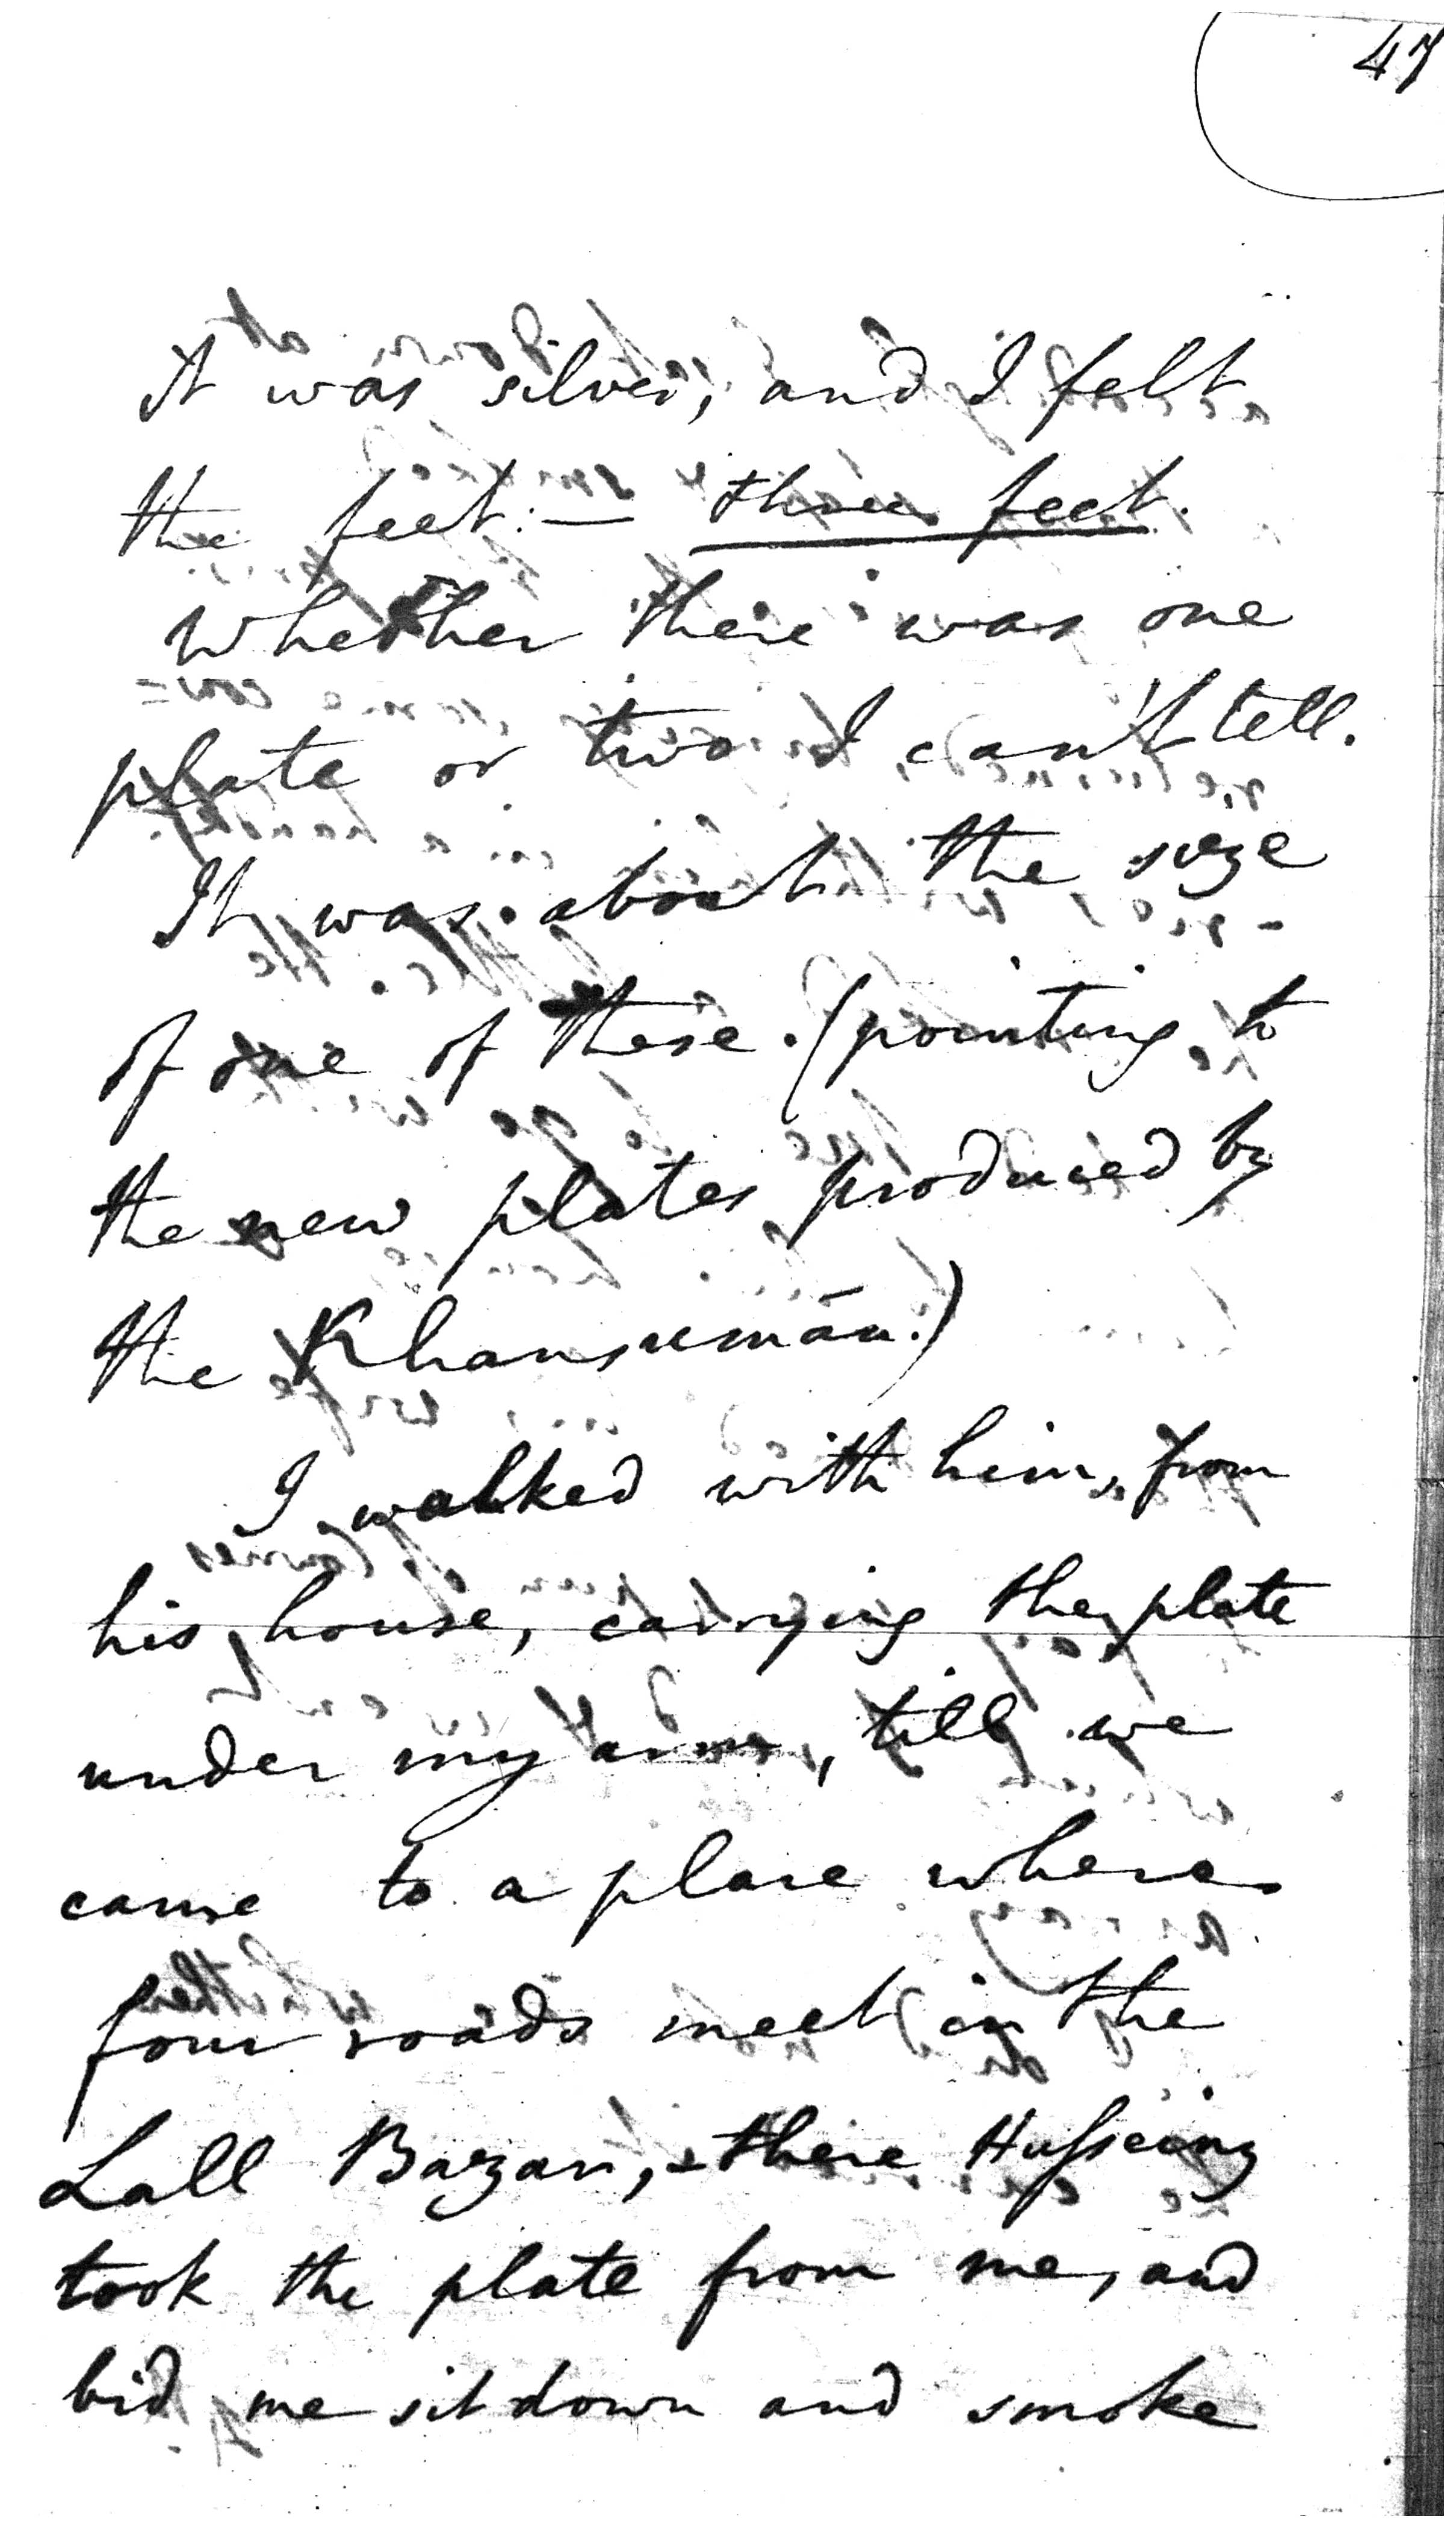 47
It was silver, and I felt
the feet: — three feet.
Whether there was one
plate or two I can't tell.
It was about the size
of one of these. (pointing to
the new plates produced by
the Khansumān.)
I walked with him, from
his house, carrying the plate
under my arm, till we
came to a place where
four roads meet in the
Lall Bazar, & there Husseing
took the plate from me, and
bid me sit down and smoke